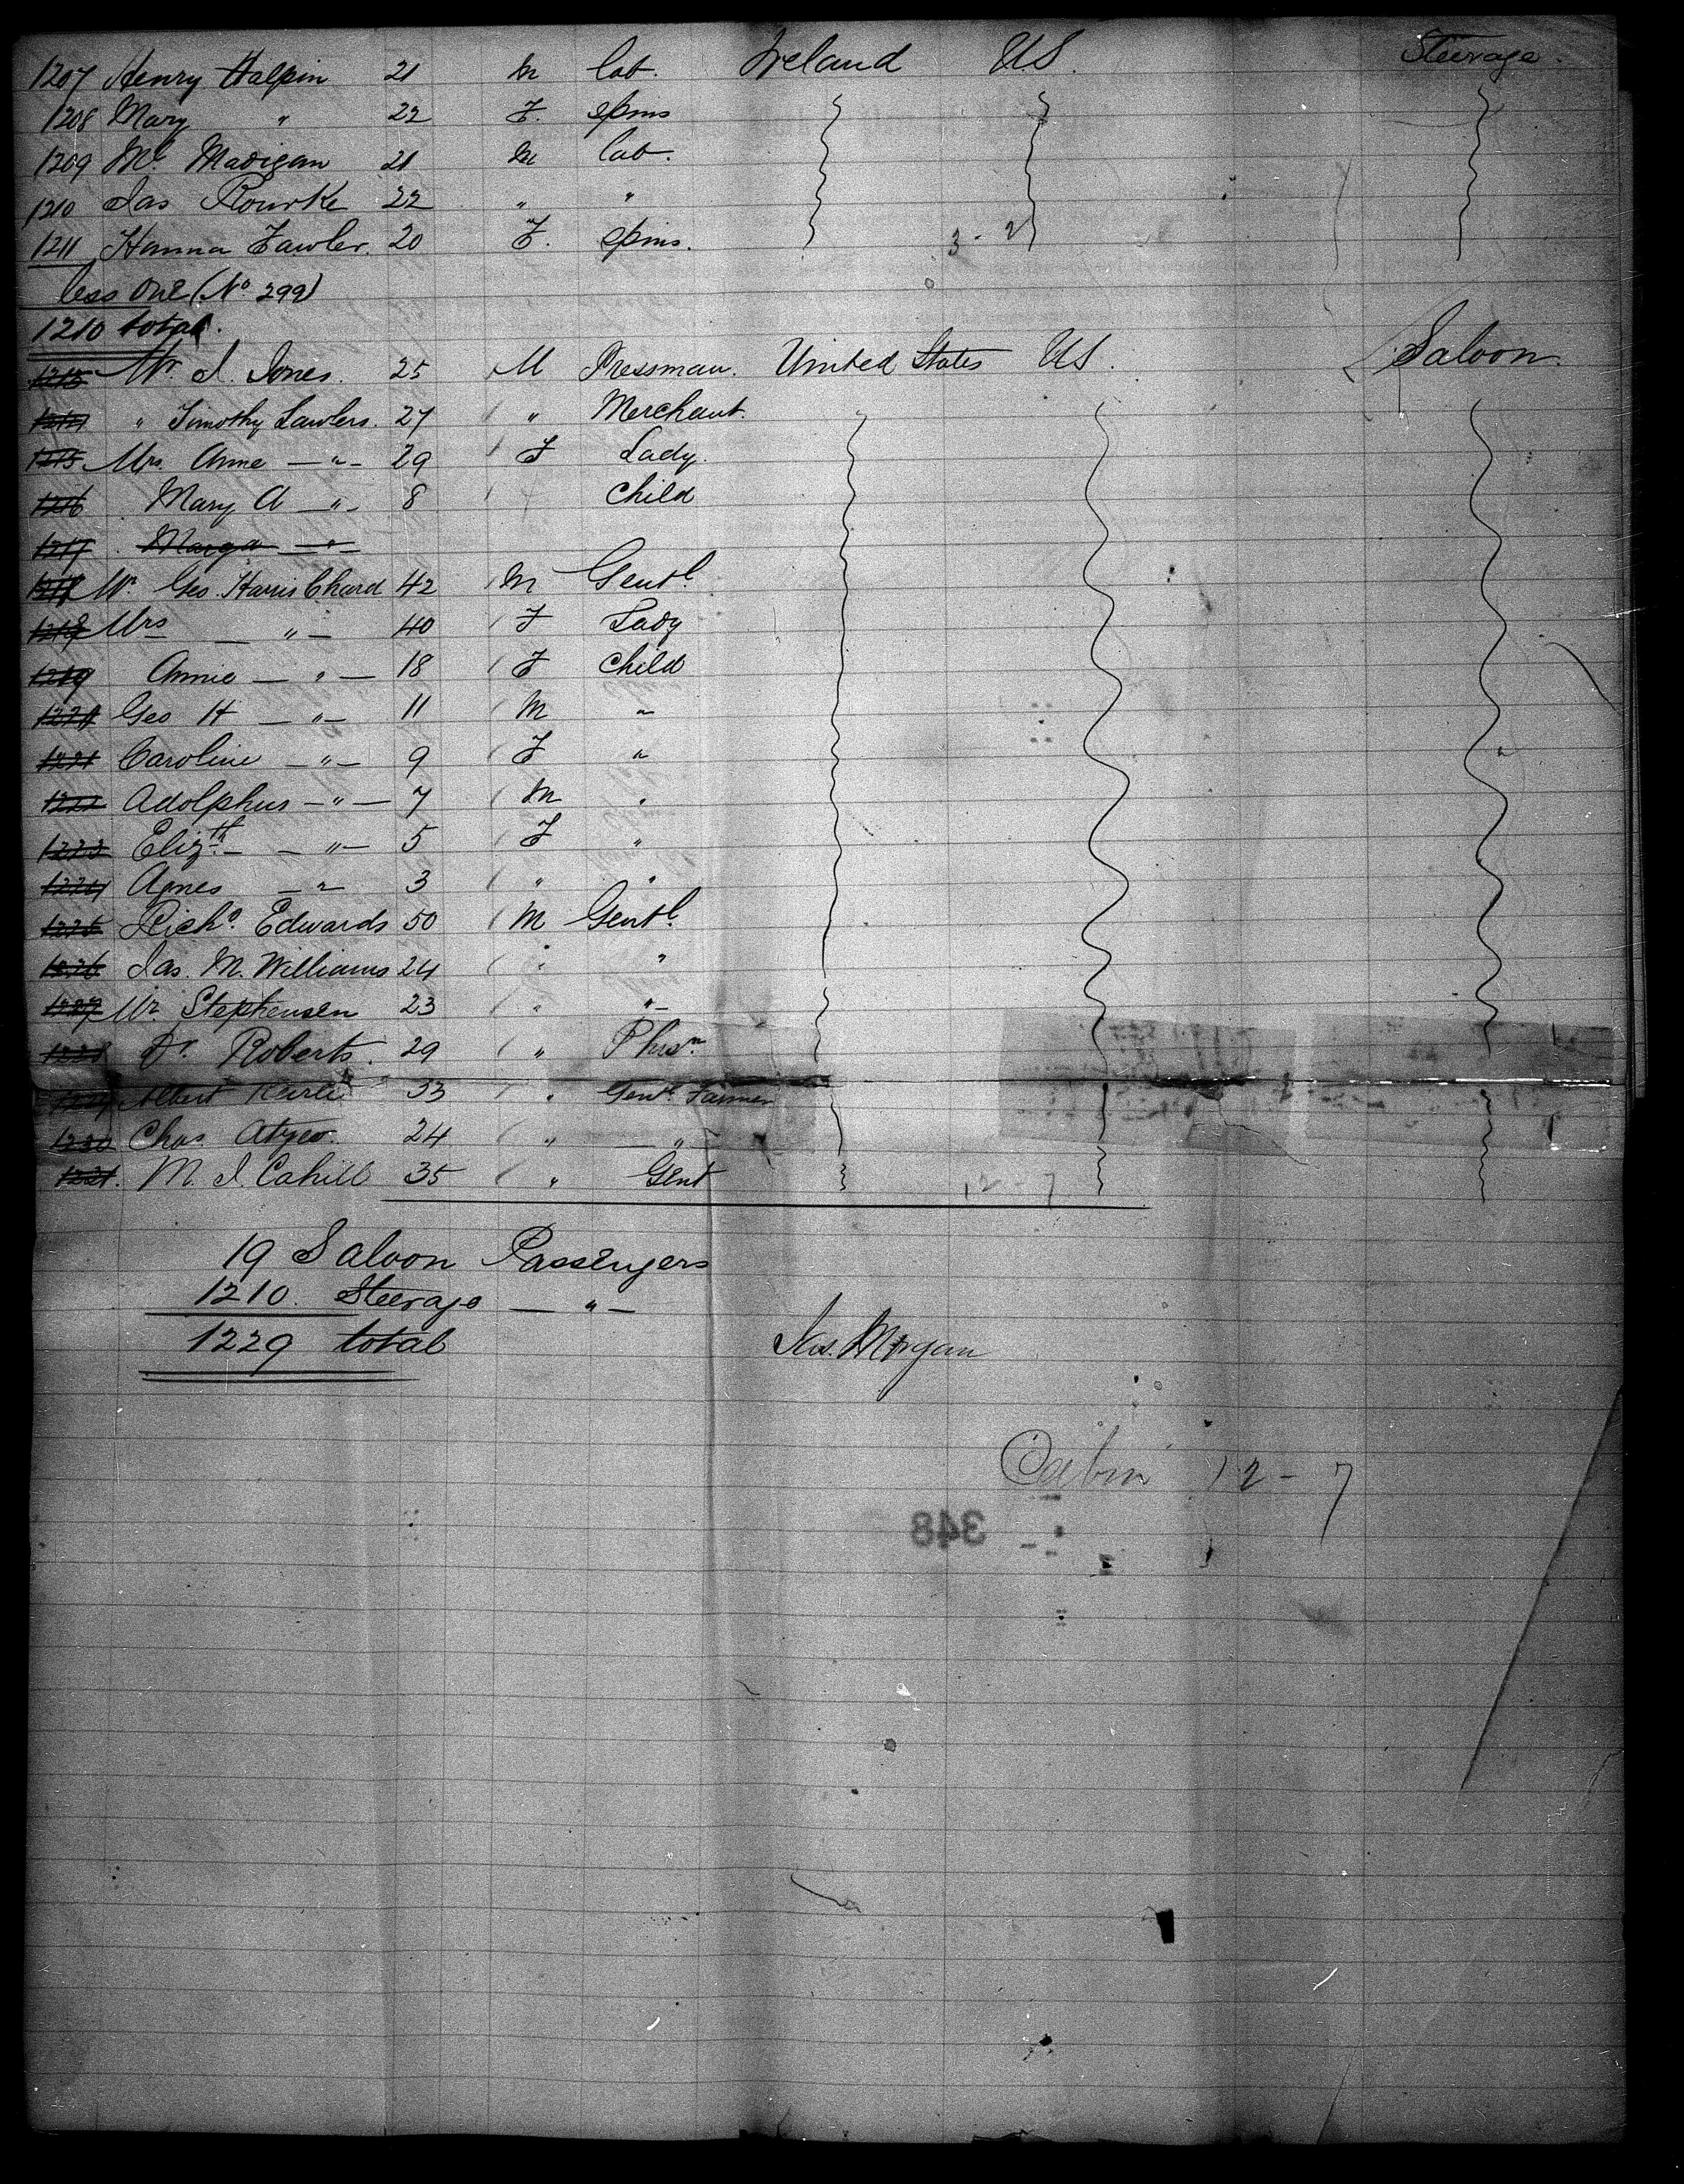 1207 Henry Halpin 21 M lab. Ireland U.S. Steerage.
1208 Mary " 22 F. spins
1209 Ml. Madigan 21 M lab.
1210 Jas Rourke 22 " "
1211 Hanna Lawler. 20 F. spins. 3 - 2
less one (No. 299)
1210 total.
Mr. J. Jones. 25 M Pressman. United States US. Saloon.
" Timothy Lawlers. 27 " Merchant.
1215 Mrs. Anne — " — 29 F Lady.
1216 Mary A — " — 8 child
1217 Marga — " —
Mr. Geo. Harris Chard 42 M Gentl.
Mrs — " — 40 F Lady
1219 Annie — " — 18 F child
Geo H — " — 11 M "
1221 Caroline — " — 9 F "
1222 Adolphus — " — 7 M "
1223 Elizth — " — 5 F "
1224 Agnes — " — 3 " "
1225 Richd. Edwards 50 M Gentl.
1226 Jas. M. Williams 24 " "
1227 Mr. Stephensen 23 " "
1228 Dr. Roberts. 29 " Phisn.
Albert 33 " Gentl. Farmer
1230 Chas. Atyeo. 24 " — " —
1231. M. J. Cahill 35 " Gent 12 - 7
19 Saloon Passengers
1210. Steerage — " —
1229 total
Jas. Morgan
Cabin 12 - 7
348